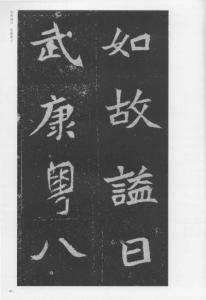 如故謚曰
武康粵八